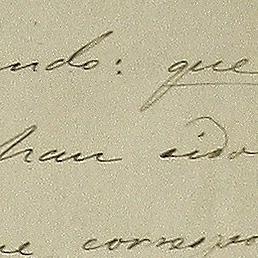 ndo: que
han sido
ue correspo